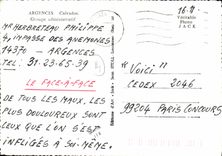 ARGENCES Calvados
Groupe administratif
Mr HERBRETEAU PHILIPPE
4, IMPASSE DES ANEMONES
14370 - ARGENCES
TEL: 31-23-65-39
LE FACE-À-FACE
DE TOUS LES MAUX, LES
PLUS DOULOUREUX SONT
CEUX QUE L'ON S'EST
INFLIGÉS À SOI-MÊME.
Véritable
Photo
JACK
"VOICI"
CEDEX 2046
99204 PARIS CONCOURS